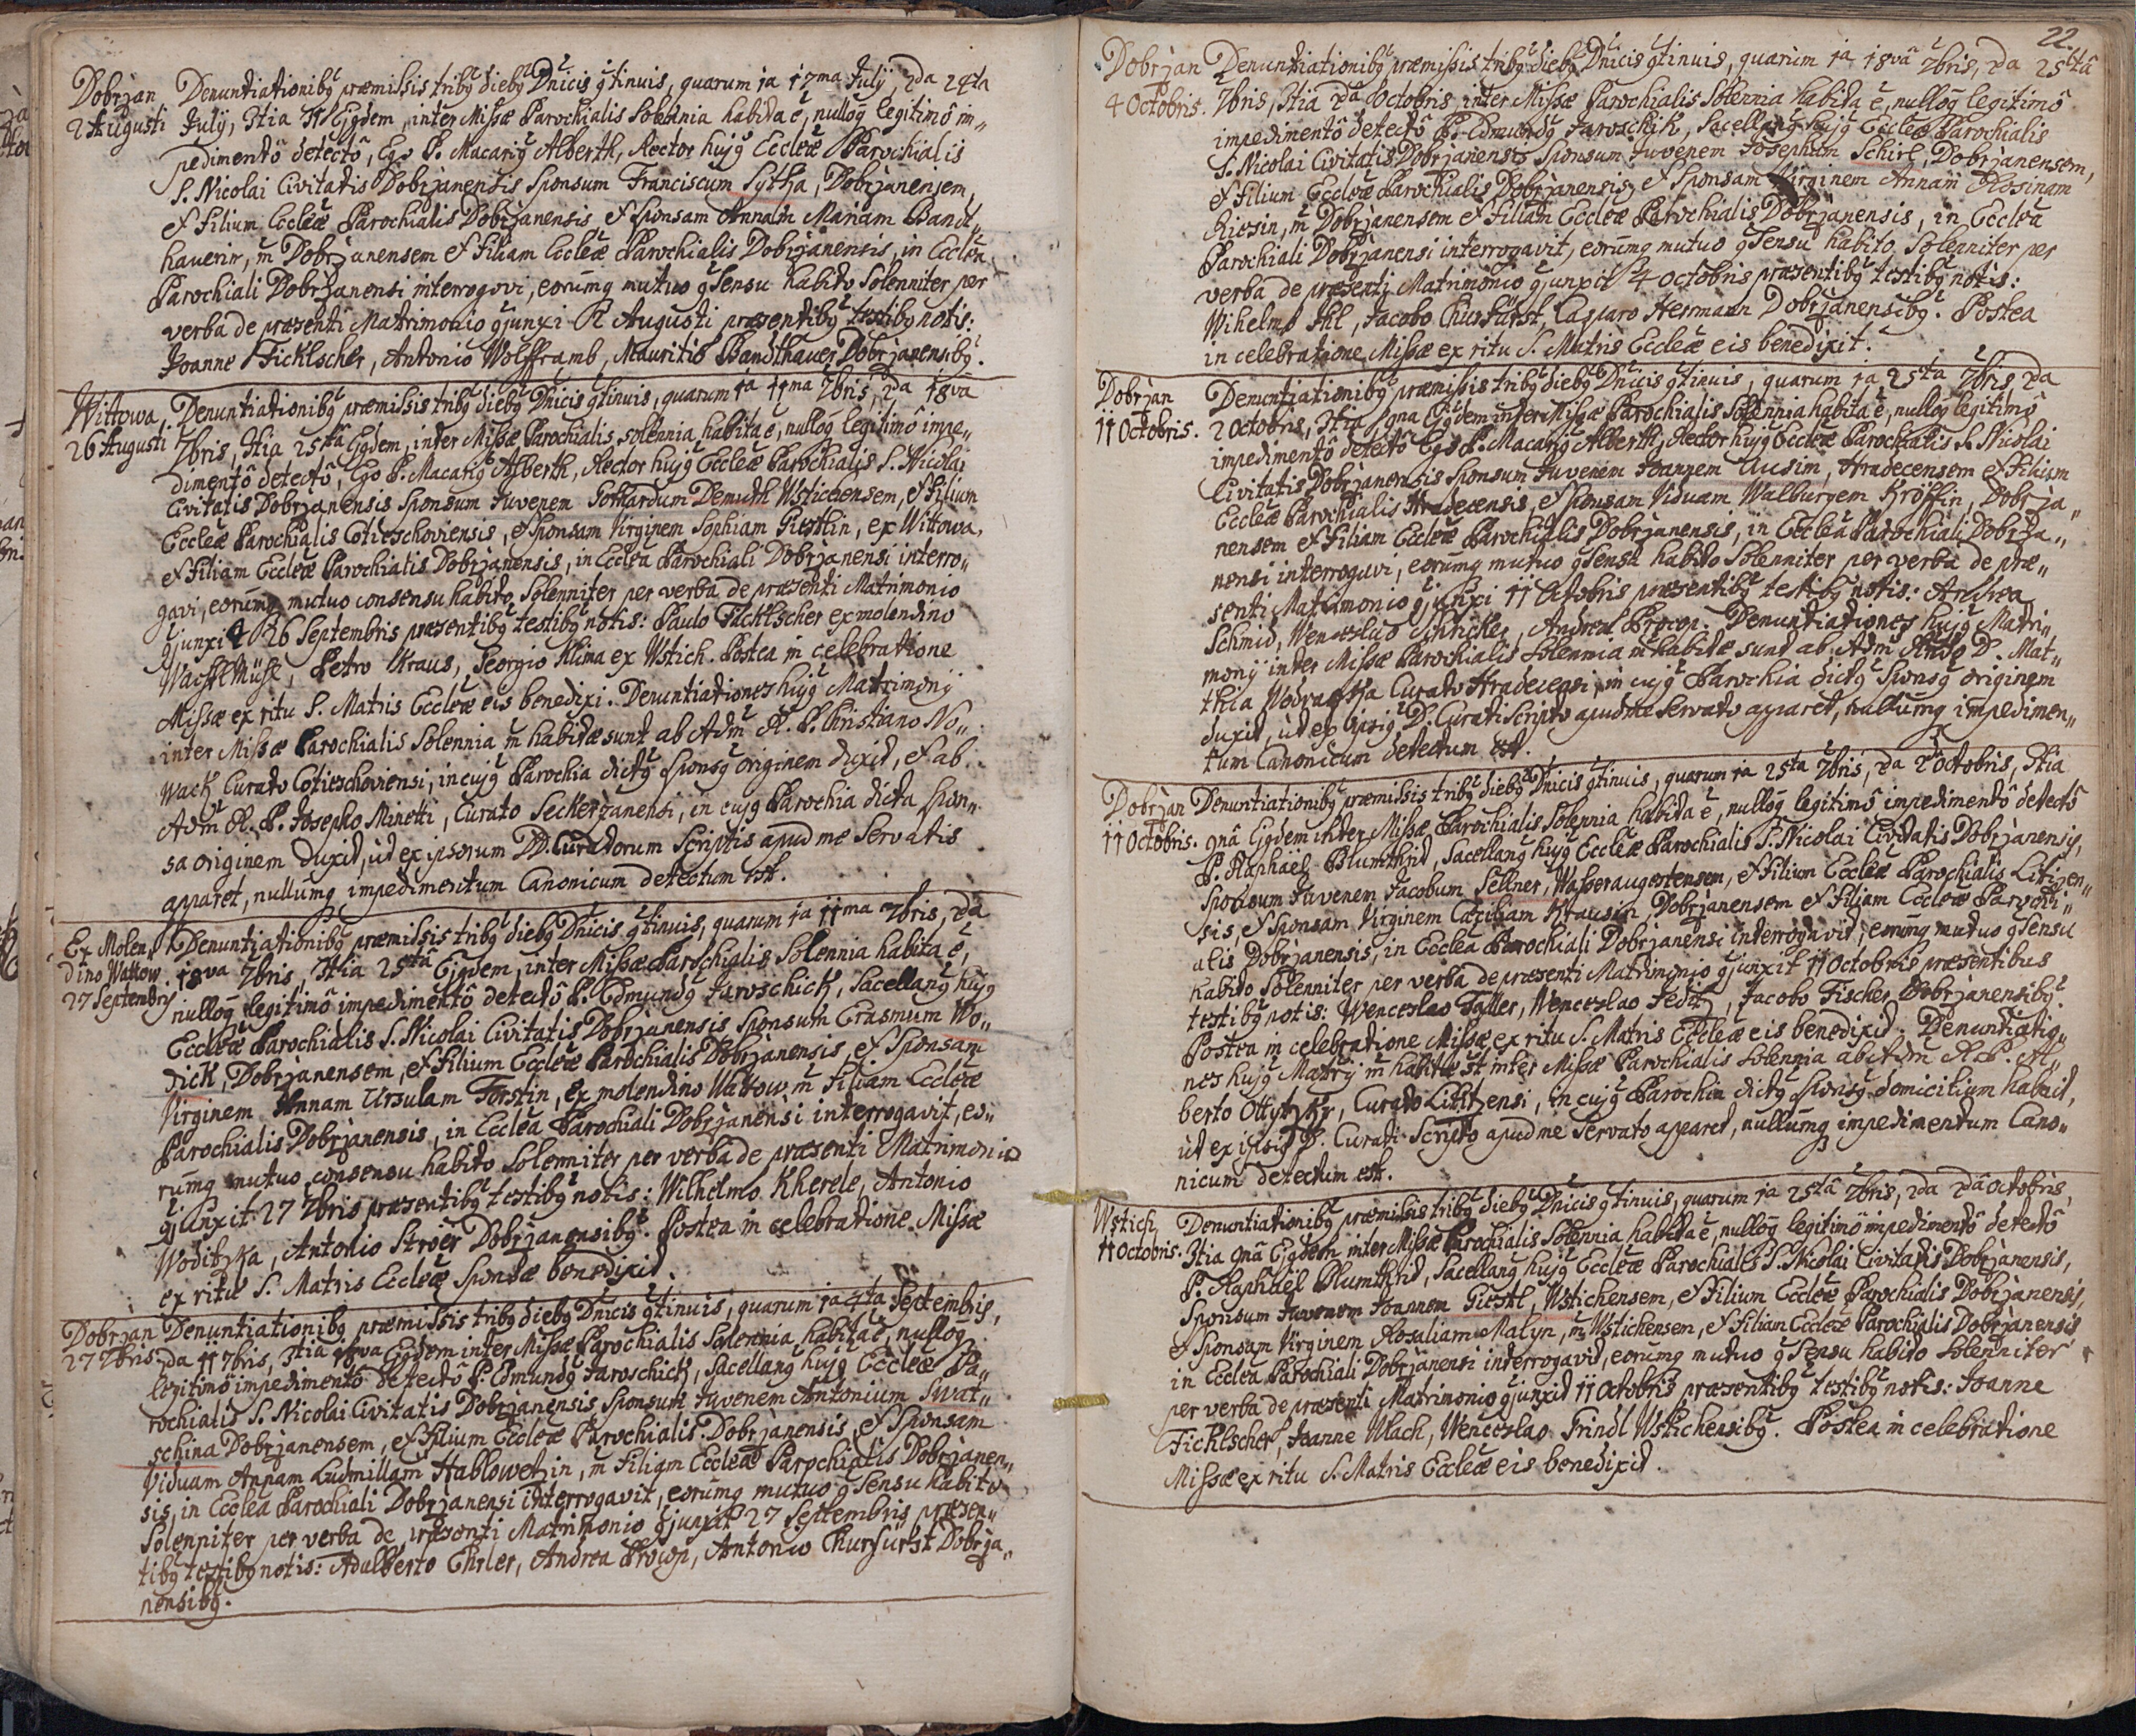 Dobrzan Denuntiationibꝰ præmissis tribꝰ diebꝰ Dnicis ꝯtinuis, quarum 1a 17ma Julij, 2da 24ta
2 Augusti Julij, 3tia 31 Ejꝰdem, inter Missæ Parochialis Solennia habita ē, nulloꝗ legitimô im„
pedimentô detectô, Ego P. Macariꝰ Alberth, Rector hujꝰ Eccleæ Parochialis
S. Nicolai Civitatis Dobrzanensis Sponsum Franciscum Sytha, Dobrzanensem,
et Filium Eccleæ Parochialis Dobrzanensis et Sponsam Annam Mariam Bandt„
hauerin, m̄ Dobrzanensem et Filiam Eccleæ Parochialis Dobrzanensis, in Ecclea
Parochiali Dobrzanensi interrogavi, eorumꝗ mutuo ꝯsensu habito Solenniter per
verba de præsenti Matrimonio ꝯjunxi 2 Augusti præsentibꝰ testibꝰ notis:
Joanne Ficklscher, Antonio Wolfframb, Mauritio Bandthauer Dobrzanensibꝰ.
Wittowa. Denuntiationibꝰ præmissis tribꝰ diebꝰ Dnicis ꝯtinuis, quarum 1a 11ma 7bris, 2da 18va
26 Augusti 7bris, 3tia 25ta Ejꝰdem, inter Missæ Parochialis solennia habita ē, nulloꝗ legitimô impe„
dimentô detectô, Ego P. Macariꝰ Alberth, Rector hujꝰ Eccleæ Parochialis S. Nicolai
Civitatis Dobrzanensis Sponsum Juvenem Gothardum Demuth Wsticensem, et Filium
Eccleæ Parochialis Cotieschoviensis, et Sponsam Virginem Sophiam Giesthin, ex Wittowa,
et Filiam Eccleæ Parochialis Dobrzanensis, in Ecclea Parochiali Dobrzanensi interro„
gavi, eorumꝗ mutuo consensu habito Solenniter per verba de præsenti Matrimonio
ꝯjunxi 26 Septembris præsentibꝰ testibꝰ notis: Paulo Ficklscher ex molendino
Petro Kraus, Georgio Klima ex Wstich. Postea in celebratione
Missæ ex ritu S. Matris Eccleæ eis benedixi. Denuntiationes hujꝰ Matrimonij
inter Missæ Parochialis Solennia m̄ habitæ sunt ab Adm R. P. Christiano No„
wack Curato Cotieschoviensi, in cujꝰ Parochia dictꝰ Sponsꝰ originem duxit, et ab
Adm R. P. Josepho Minetti, Curato Seckerzanensi, in cujꝰ Parochia dicta spon„
sa originem duxit, ut ex ipsorum DD. Curatorum Scriptis apud me Servatis
apparet, nullumꝗ impedimentum Canonicum detectum est.
Ex Molen„ Denuntiationibꝰ præmissis tribꝰ diebꝰ Dnicis ꝯtinuis, quarum 1a 11ma 7bris, 2da
dino Wattow 18va 7bris, 3tia 25ta Ejꝰdem, inter Missæ Parochialis Solennia habita ē,
27 Septembris nulloꝗ legitimô impedimentô detectô P. Edmundꝰ Jaroschick, Sacellanꝰ hujꝰ
Eccleæ Parochialis S. Nicolai Civitatis Dobrzanensis Sponsum Erasmum Wo„
dick, Dobrzanensem, et Filium Eccleæ Parochialis Dobrzanensis, et Sponsam
Virginem Annam Ursulam Forstin, ex molendino Wattow, m̄ Filiam Eccleæ
Parochialis Dobrzanensis, in Ecclea Parochiali Dobrzanensi interrogavit, eo„
rumꝗ mutuo consensu habito Solenniter per verba de præsenti Matrimonio
ꝯjunxit 27 7bris præsentibꝰ testibꝰ notis: Wilhelmo Kherele, Antonio
Woditzka, Antonio Ströer Dobrzanensibꝰ. Postea in celebratione Missæ
ex ritu S. Matris Eccleæ Sponsæ benedixit.
Dobrzan Denuntiationibꝰ præmissis tribꝰ diebꝰ Dnicis ꝯtinuis, quarum 1a 4ta Septembris,
27 7bris. 2da 11 7bris, 3tia 18va Ejꝰdem inter Missæ Parochialis Solennia habita ē, nulloꝗ
legitimô impedimentô detectô P. Edmundꝰ Jaroschick, Sacellanꝰ hujꝰ Eccleæ Pa„
rochialis S. Nicolai Civitatis Dobrzanensis Sponsum Juvenem Antonium Swat„
schina Dobrzanensem, et Filium Eccleæ Parochialis Dobrzanensis, et Sponsam
Viduam Annam Ludmillam Hablowetzin, m̄ Filiam Eccleæ Parochialis Dobrzanen„
sis, in Ecclea Parochiali Dobrzanensi interrogavit, eorumꝗ mutuo ꝯsensu habito
Solenniter per verba de præsenti Matrimonio ꝯjunxit 27 Septembris præsen„
tibꝰ testibꝰ notis: Adalberto Ehrler, Andrea Procop, Antonio Churfürst Dobrza„
nensibꝰ.
22.
Dobrzan Denuntiationibꝰ præmissis tribꝰ diebꝰ Dnicis ꝯtinuis, quarum 1a 18vâ 7bris, 2da 25tâ
4 Octobris. 7bris, 3tia 2da Octobris, inter Missæ Parochialis Solennia habita ē, nulloꝗ legitimô
impedimentô detectô P. Edmundꝰ Jaroschik, Sacellanꝰ hujꝰ Eccleæ Parochialis
S. Nicolai Civitatis Dobrzanensis Sponsum Juvenem Josephum Schirl, Dobrzanensem,
et Filium Eccleæ Parochialis Dobrzanensis, et Sponsam Virginem Annam Rosinam
Riesin, m̄ Dobrzanensem et Filiam Eccleæ Parochialis Dobrzanensis, in Ecclea
Parochiali Dobrzanensi interrogavit, eorumꝗ mutuo ꝯsensu habito Solenniter per
verba de præsenti Matrimonio ꝯjunxit 4 Octobris præsentibꝰ testibꝰ notis:
Wihelmo Ihl, Jacobo Churfürst, Casparo Herrmann Dobrzanensibꝰ. Postea
in celebratione Missæ ex ritu S. Matris Eccleæ eis benedixit.
Dobrzan Denuntiationibꝰ præmissis tribꝰ diebꝰ Dnicis ꝯtinuis, quarum 1a 25ta 7bris, 2da
11 Octobris. 2 Octobris, 3tia 9na Ejꝰdem inter Missæ Parochialis Solennia habita ē, nulloꝗ legitimô
impedimentô detectô Ego P. Macariꝰ Alberth, Rector hujꝰ Eccleæ Parochialis S. Nicolai
Civitatis Dobrzanensis Sponsum Juvenem Joannem Cucsim, Hradecensem et Filium
Eccleæ Parochialis Hradecensis, et Sponsam Viduam Walburgem Kröfflin, Dobrza„
nensem et Filiam Eccleæ Parochialis Dobrzanensis, in Ecclea Parochiali Dobrza„
nensi interrogavi, eorumꝗ mutuo ꝯsensu habito Solenniter per verba de præ„
senti Matrimonio ꝯjunxi 11 Octobris præsentibꝰ testibꝰ notis: Andrea
Schmid, Wenceslao Schricker, Andrea Procop. Denuntiationes hujꝰ Matri„
monij inter Missæ Parochialis Solennia m̄ habitæ sunt ab Adm Rndo D. Mat„
thia Wodratzka Curato Hradecensi, in cujꝰ Parochia dictꝰ Sponsꝰ originem
duxit, ut ex ipsiꝰ D. Curati Scripto apud me servato apparet, nullumꝗ impedimen„
tum Canonicum detectum est.
Dobrzan Denuntiationibꝰ præmissis tribꝰ diebꝰ Dnicis ꝯtinuis, quarum 1a 25ta 7bris, 2da 2 Octobris, 3tia
11 Octobris. 9nâ Ejꝰdem inter Missæ Parochialis Solennia habita ē, nulloꝗ legitimô impedimentô detectô
P. Raphaël Blumthrid, Sacellanꝰ hujꝰ Eccleæ Parochialis S. Nicolai Civitatis Dobrzanensis,
Sponsum Juvenem Jacobum Sellner, Wasseraugestensem, et Filium Eccleæ Parochialis Litizen„
sis, et Sponsam Virginem Cæciliam Krausin, Dobrzanensem et Filiam Eccleæ Parochi„
alis Dobrzanensis, in Ecclea Parochiali Dobrzanensi interrogavit, eorumꝗ mutuo ꝯsensu
habito Solenniter per verba de præsenti Matrimonio ꝯjunxit 11 Octobris præsentibus
testibꝰ notis: Wenceslao Taller, Wenceslao Feditz, Jacobo Fischer Dobrzanensibꝰ.
Postea in celebratione Missæ ex ritu S. Matris Eccleæ eis benedixit. Denuntiatio„
nes hujꝰ Matrij m̄ habitæ st inter Missæ Parochialis Solennia ab Adm R. P. Al„
berto Ottytzky, Curato Lititzensi, in cujꝰ Parochia dictꝰ Sponsꝰ domicilium habuit,
ut ex ipsiꝰ P. Curati Scripto apud me servato apparet, nullumꝗ impedimentum Cano„
nicum detectum est.
Wstich, Denuntiationibꝰ præmissis tribꝰ diebꝰ Dnicis ꝯtinuis, quarum 1a 25tâ 7bris, 2da 2dâ Octobris,
11 Octobris. 3tia 9nâ Ejꝰdem inter Missæ Parochialis Solennia habita ē, nulloꝗ legitimô impedimentô detectô
P. Raphaël Blumthrid, Sacellanꝰ hujꝰ Eccleæ Parochialis S. Nicolai Civitatis Dobrzanensis,
Sponsum Juvenem Joannem Giestl, Wstichensem, et Filium Eccleæ Parochialis Dobrzanensis,
et Sponsam Virginem Rosaliam Malyn, m̄ Wstichensem, et Filiam Eccleæ Parochialis Dobrzanensis
in Ecclea Parochiali Dobrzanensi interrogavit, eorumꝗ mutuo ꝯsensu habito Solenniter
per verba de præsenti Matrimonio ꝯjunxit 11 Octobris præsentibꝰ testibꝰ notis: Joanne
Ficklscher, Joanne Wlach, Wenceslao Trindl Wstichensibꝰ. Postea in celebratione
Missæ ex ritu S. Matris Eccleæ eis benedixit.